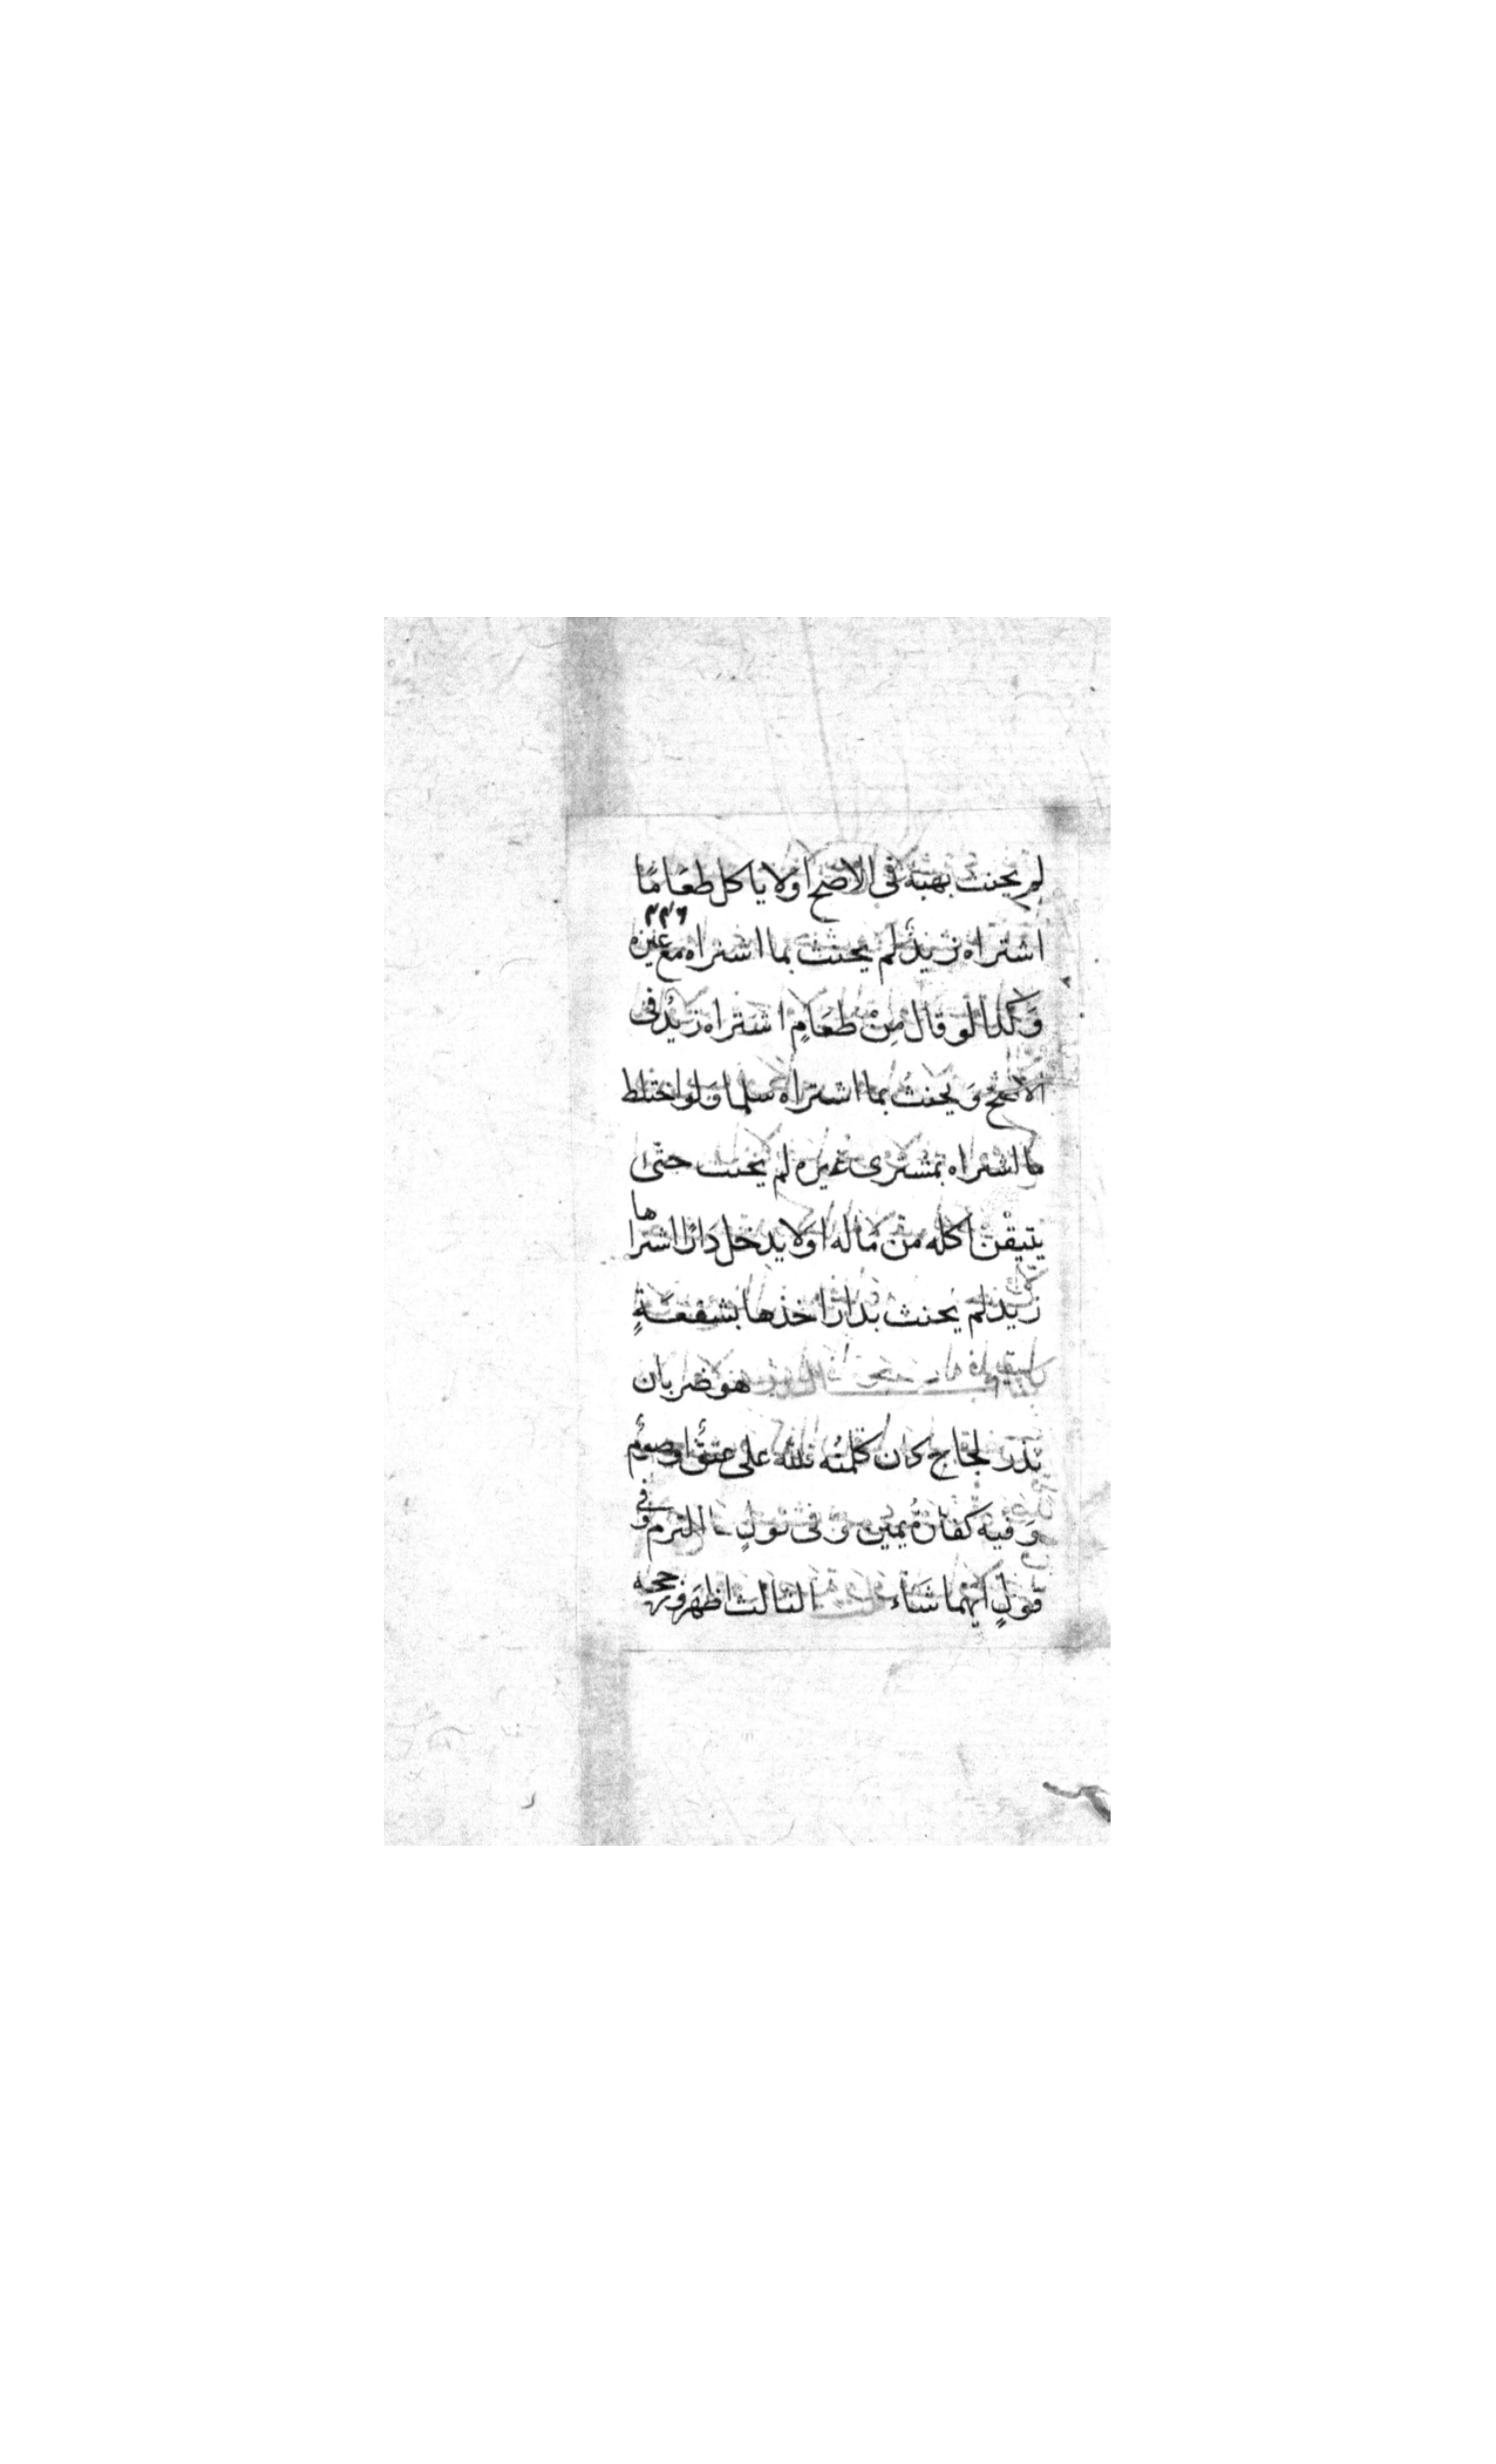 لم يحنث بهبة فى الاصح اولا ياكل طعَامًا
اشتراه زيد لم يحنث بما اشتراه مع غيره
وَكذا لو قال مِنْ طعَامٍ اشتراه زيدٌ فى
الاصح وَيحنث بما اشتراه سلما وَلو اختلط
ما اشتراه بمشترى غيره لم يحنث حتّى
يتيقن اكله من ماله اولا يدخل دَارًا اشتراها
زيد لم يحنث بدار اخذها بشفعَةٍ
هو ضربان
نذر لجاج كان كلمته فلله على عتقٌ او صومٌ
وَفيه كفارةُ يمين وَفى قولٍ ما التزم وَفى
قولٍ ايهما شَاء الثالث اظهر ورجحه